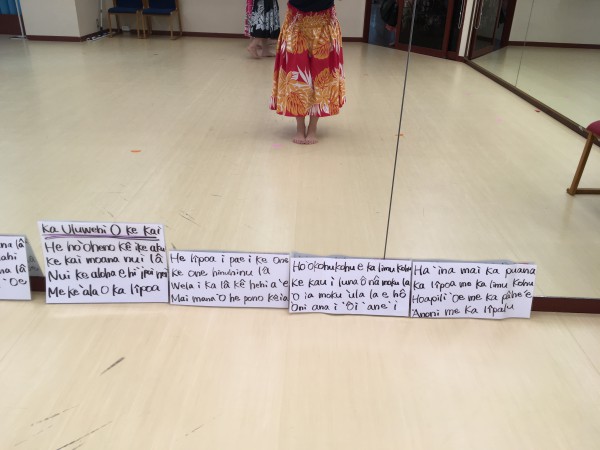 ana lâ
lahi
na lâ
i 'Oe
Ka Uluwehi O Ke Kai
He ho'oheno kê ike aku
Ke kai moana nui lâ
Nui ke aloha e hi'ipoi mai
Me ke 'ala O ka lîpoa
He lîpoa i pae i ke one
Ke one hinuhinu lâ
Wela i ka lâ kê hehi a'e
Mai mana'O he pono keia
Ho'okohukohu e ka limu kohu
Ke kau i luna Ô nâ moku la
'O ia moku 'ula la e hô
Oni ana i 'Ôi 'ane'i
Ha'ina mai ka puana
Ka lîpoa me ka limu kohu
Hoapili 'Oe me ka pâhe'e
'Anoni me ka lîpalu